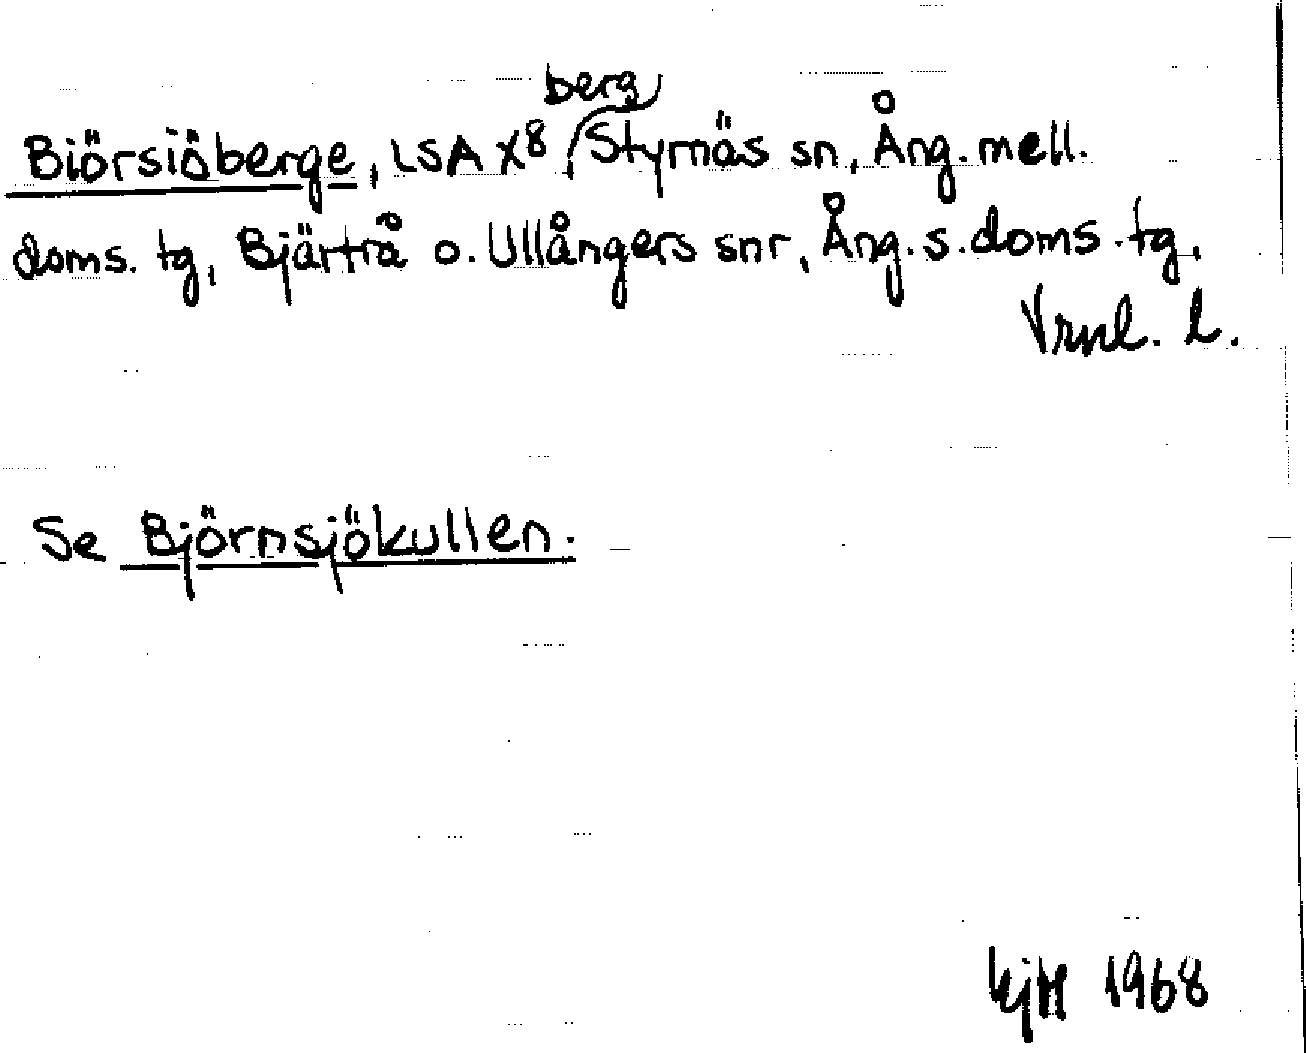 berg
Biörsiöberge, LSA X8 Styrnäs sn, Ång. mell.
doms. tg, Bjärtrå o. Ullångers snr, Ång. s. doms. tg.
Vrnl. l.
Se Björnsjökullen.
1968